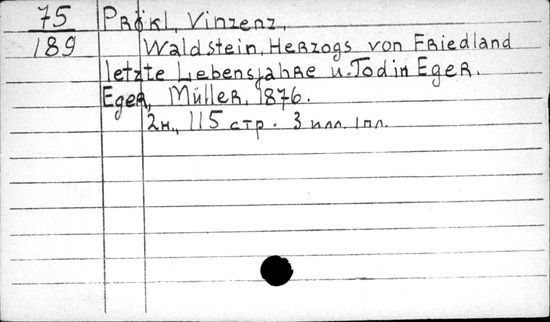 75 Prökl, Vinzenz,
189 Waldstein, Herzogs von Friedland
letzte Lebensjahre u. Tod in Eger.
Eger, Müller, 1876.
2н., 115 стр. 3 илл. 1 пл.